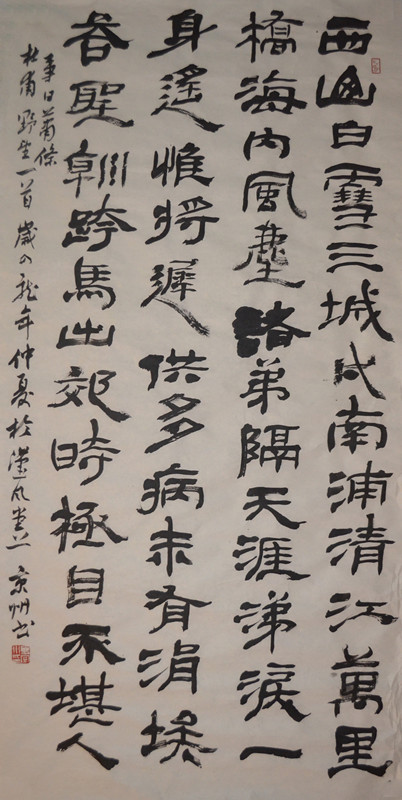 西山白雪三城戍南浦清江萬里
橋海内風塵諸弟隔天涯涕淚一
身遙惟將遲供多病未有涓埃
荅聖朝跨馬出郊時極目不堪人
事日蕭條
杜甫野望一首歲次龍年仲夏於漢風堂上京州書